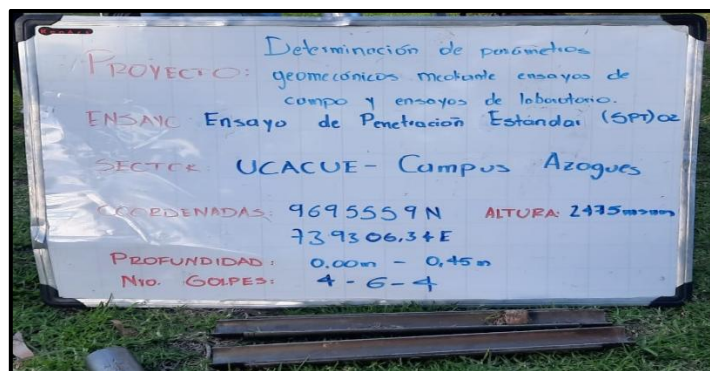 PROYECTO: Determinación de parámetros
geomecánicos mediante ensayos de
campo y ensayos de laboratorio.
ENSAYO Ensayo de Penetración Estándar (SPT)02
SECTOR UCACUE - Campus Azogues
COORDENADAS: 9695559N ALTURA: 2475msnm
739306,34E
PROFUNDIDAD: 0.00m - 0,45m
Nro. GOLPES: 4 - 6 - 4